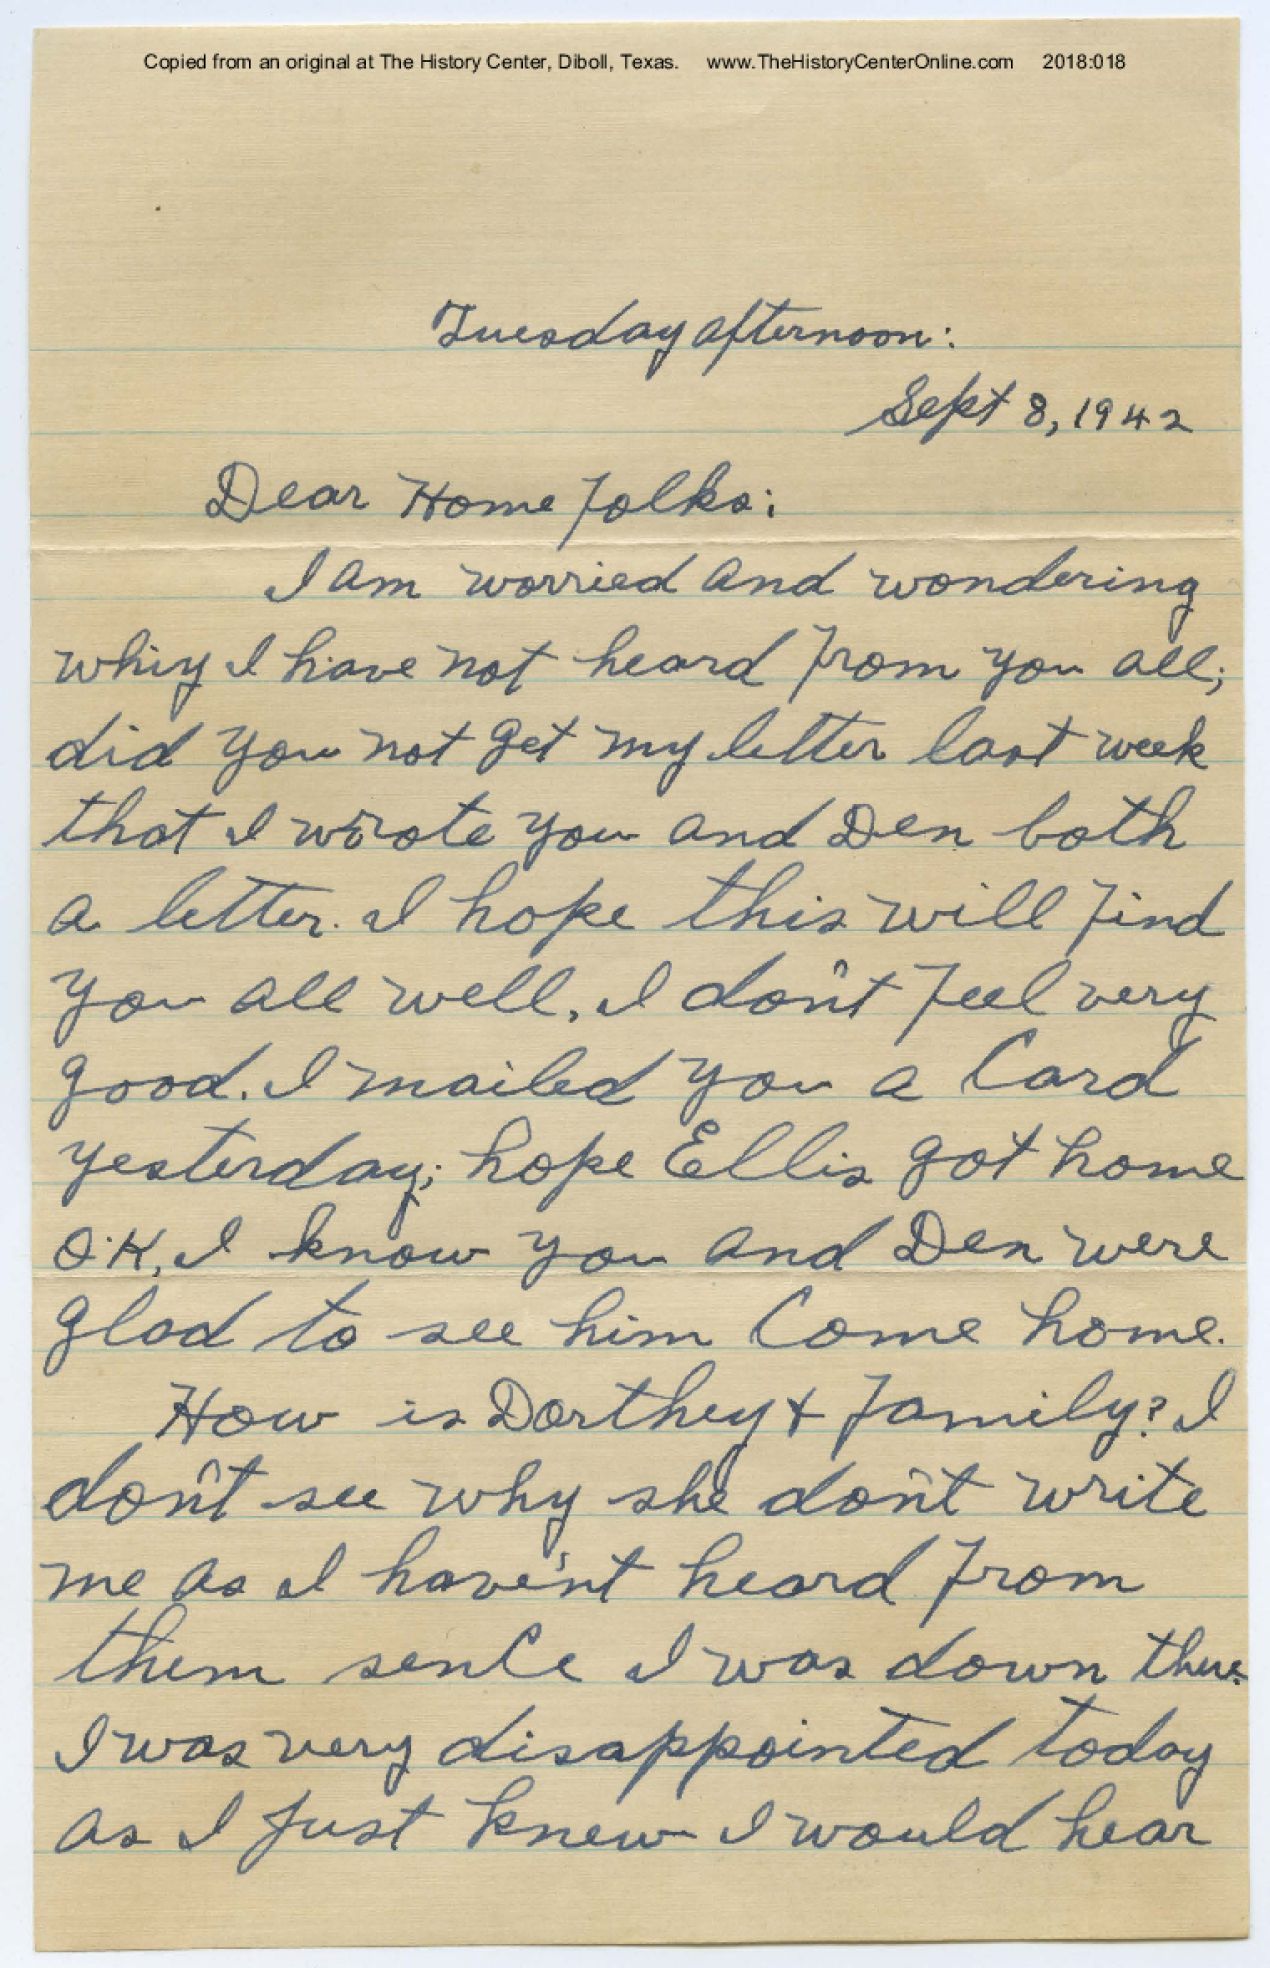 Copied from an original at The History Center, Diboll, Texas. www.TheHistoryCenterOnline.com 2018:018
Tuesday afternoon:
Sept 8, 1942
Dear Home folks:
I am worried and wondering
whiy I have not heard from you all;
did you not get my letter last week
that I wrote you and Den both
a letter. I hope this will find
you all well, I don't feel very
good. I mailed you a Card
yesterday; hope Ellis got home
O.K, I know you and Den were
glad to see him Come home.
How is Dorthey & family? I
don't see why she don't write
me as I have'nt heard from
them sence I was down there.
I was very disappointed today
as I just knew I would hear